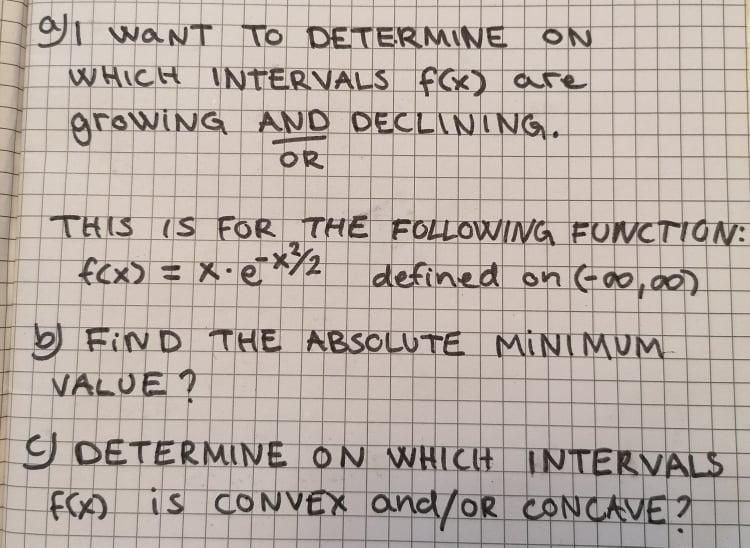 a) I WANT TO DETERMINE ON
WHICH INTERVALS f(x) are
growING AND DECLINING.
OR
THIS IS FOR THE FOLLOWING FUNCTION:
f(x) = x·e^-x²/2 defined on (-∞,∞)
b) FIND THE ABSOLUTE MINIMUM
VALUE?
c) DETERMINE ON WHICH INTERVALS
f(x) is CONVEX and/OR CONCAVE?